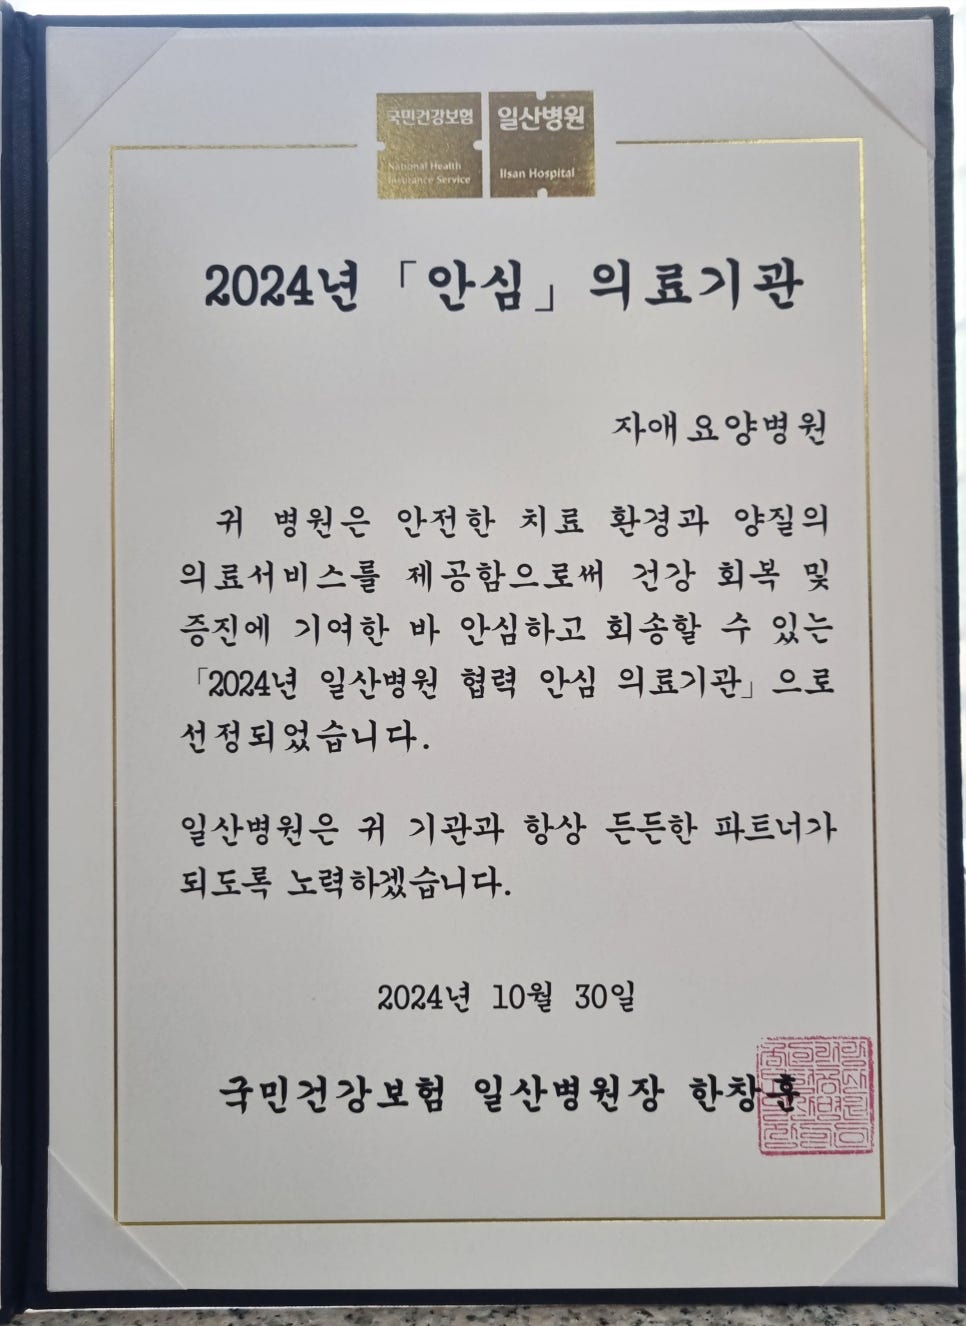 국민건강보험
National Health
Insurance Service
일산병원
Ilsan Hospital
2024년 「안심」 의료기관
자애요양병원
귀 병원은 안전한 치료 환경과 양질의
의료서비스를 제공함으로써 건강 회복 및
증진에 기여한 바 안심하고 회송할 수 있는
「2024년 일산병원 협력 안심 의료기관」으로
선정되었습니다.
일산병원은 귀 기관과 항상 든든한 파트너가
되도록 노력하겠습니다.
2024년 10월 30일
국민건강보험 일산병원장 한창훈